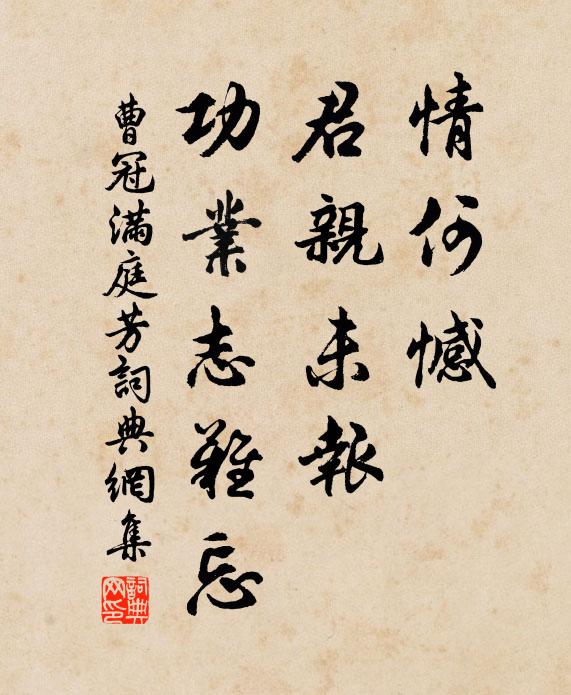 情何憾
君親未報
功業志難忘
曹冠滿庭芳詞典網集
詞典網印